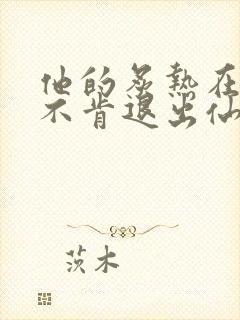 他的炙热在
不肯退出仙
茨木